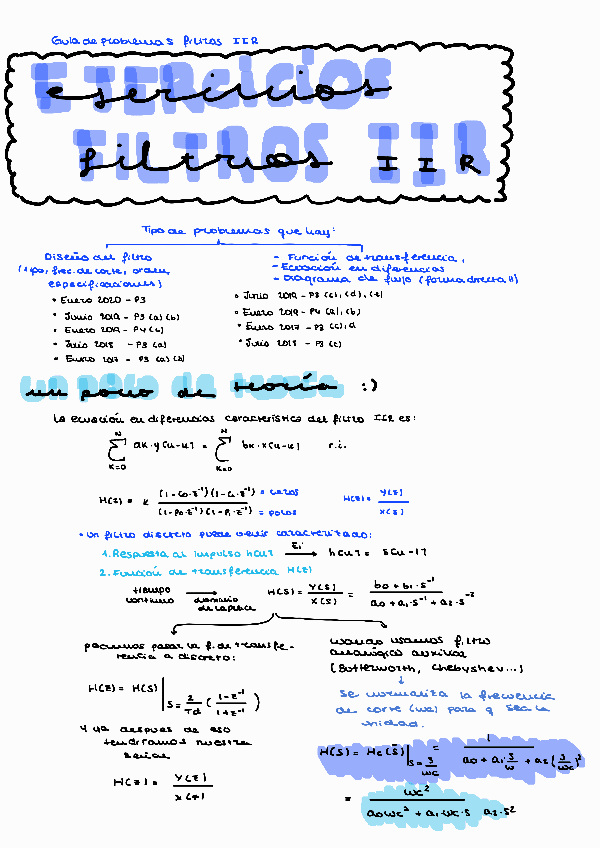 Guía de problemas filtros IIR
EJERCICIOS
ejercicios
FILTROS IIR
filtros IIR
Tipo de problemas que hay:
Diseño del filtro
(tipo, frec. de corte, orden,
especificaciones)
• Enero 2020 - P3
• Junio 2019 - P3 (a) (b)
• Enero 2019 - P4 (b)
• Julio 2018 - P3 (a)
• Enero 2017 - P3 (a) (b)
- Función de transferencia,
- Ecuación en diferencias
- Diagrama de flujo (forma directa II)
• Junio 2019 - P3 (c), (d), (e)
• Enero 2019 - P4 (a), (b)
• Enero 2017 - P3 (c), d
• Julio 2018 - P3 (c)
un poco de teoría :)
La ecuación en diferencias característica del filtro IIR es:
N ∑ k=0 ak·y[n-k] = N ∑ k=0 bk·x[n-k] r.i.
H(z) = K (1-c0·z⁻¹)(1-c1·z⁻¹) = ceros / (1-p0·z⁻¹)(1-p1·z⁻¹) = polos H(z) = Y(z) / X(z)
• Un filtro discreto puede venir caracterizado:
1. Respuesta al impulso h[n] Ej → h[n] = δ[n-1]
2. Función de transferencia H(z)
tiempo continuo → dominio de Laplace H(s) = Y(s) / X(s) = b0 + b1·s⁻¹ / a0 + a1·s⁻¹ + a2·s⁻²
podemos pasar la f. de transfe-
rencia a discreto:
H(z) = H(s) | s = 2/Td ( 1-z⁻¹ / 1+z⁻¹ )
Y ya después de eso
tendríamos nuestra
señal
H(z) = Y(z) / X(z)
cuando usamos filtro
analógico auxiliar
(Butterworth, Chebyshev...)
↓
Se normaliza la frecuencia
de corte (wc) para q sea la
unidad.
H(s) = Hc(s̄) | s̄ = s/wc = 1 / a0 + a1·s/w + a2 (s/wc)²
= wc² / a0wc² + a1·wc·s a2·s²